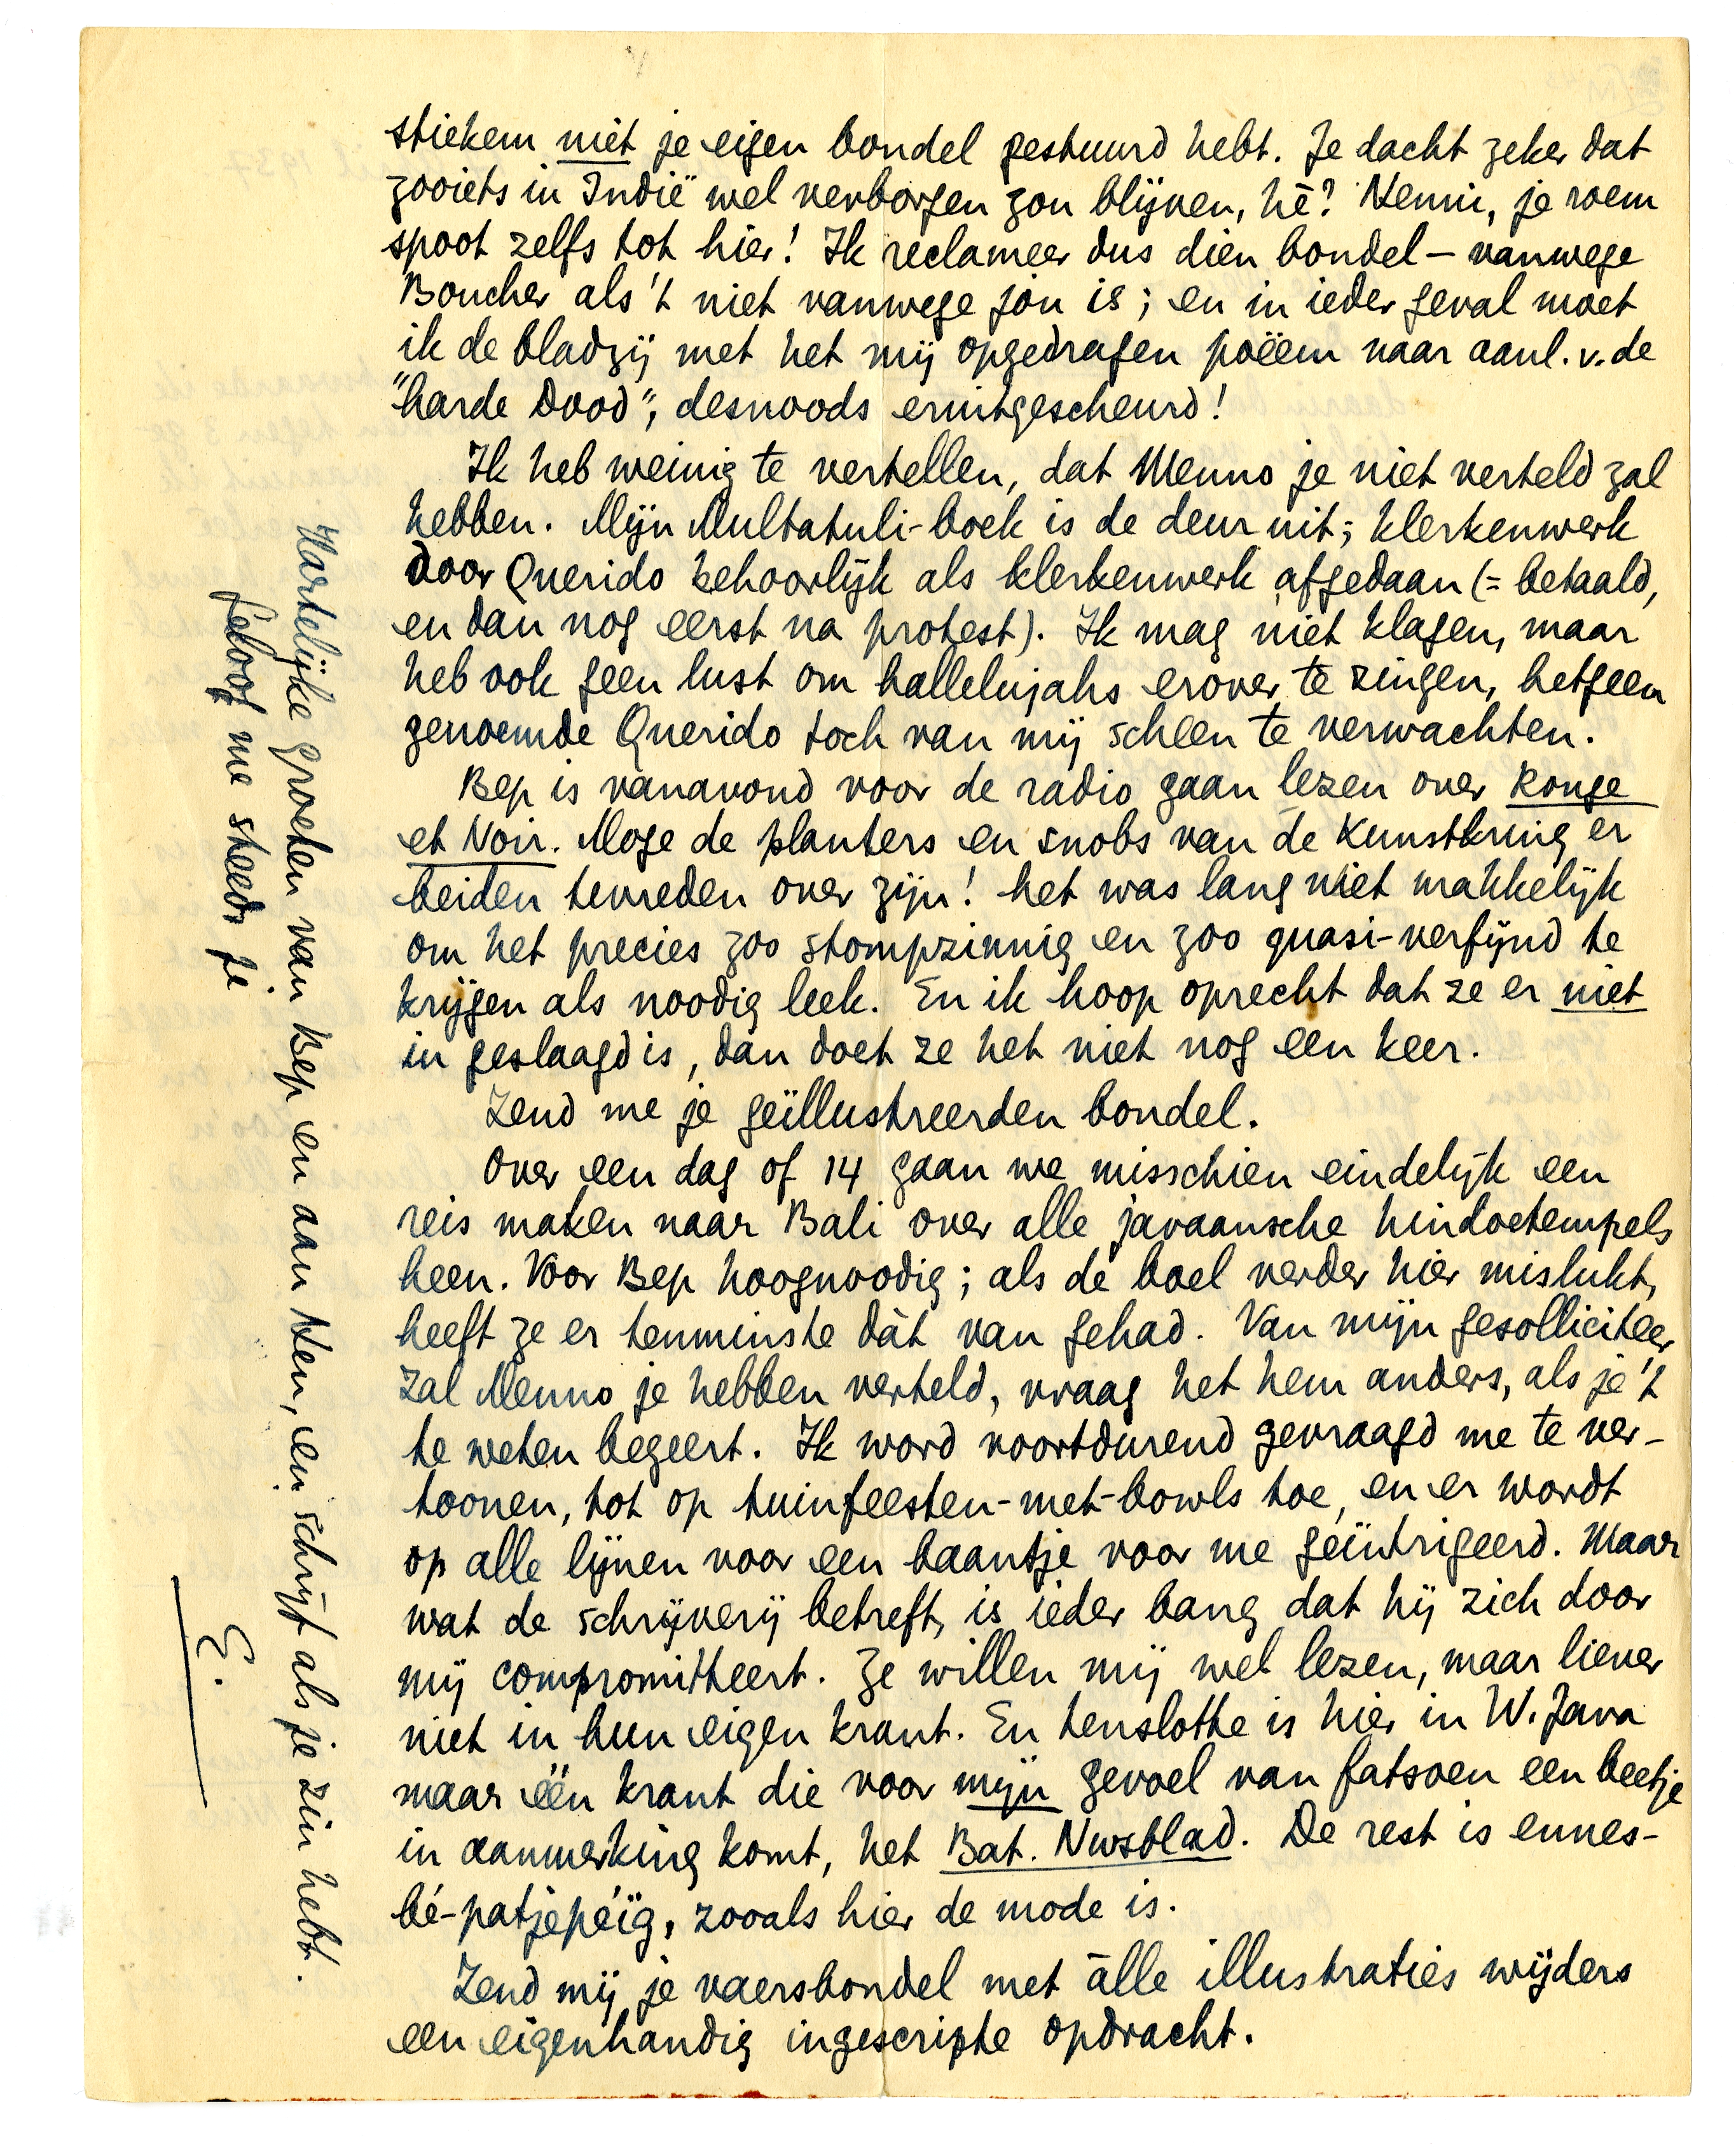 stiekem niet je eigen bondel gestuurd hebt. Je dacht zeker dat
zooiets in Indië wel verborgen zou blijven, hè? Nenni, je roem
spoot zelfs tot hier! Ik reclameer dus dien bondel – vanwege
Boucher als 't niet vanwege jou is; en in ieder geval moet
ik de bladzij met het mij opgedragen poëem naar aanl. v. de
"harde Dood", desnoods eruitgescheurd!
Ik heb weinig te vertellen, dat Menno je niet verteld zal
hebben. Mijn Multatuli-boek is de deur uit; klerkenwerk
door Querido behoorlijk als klerkenwerk afgedaan (= betaald,
en dan nog eerst na protest). Ik mag niet klagen, maar
heb ook geen lust om hallelujahs erover te zingen, hetgeen
genoemde Querido toch van mij scheen te verwachten.
Bep is vanavond voor de radio gaan lezen over Rouge
et Noir. Moge de planters en snobs van de Kunstkring er
beiden tevreden over zijn! het was lang niet makkelijk
om het precies zoo stompzinnig en zoo quasi-verfijnd te
krijgen als noodig leek. En ik hoop oprecht dat ze er niet
in geslaagd is, dan doet ze het niet nog een keer.
Zend me je geïllustreerden bondel.
Over een dag of 14 gaan we misschien eindelijk een
reis maken naar Bali over alle javaansche hindoetempels
heen. Voor Bep hoognoodig; als de boel verder hier mislukt,
heeft ze er tenminste dàt van gehad. Van mijn gesolliciteer
zal Menno je hebben verteld, vraag het hem anders, als je 't
te weten begeert. Ik word voortdurend gevraagd me te ver-
toonen, tot op tuinfeesten-met-bowls toe, en er wordt
op alle lijnen voor een baantje voor me geïntrigeerd. Maar
wat de schrijverij betreft, is ieder bang dat hij zich door
mij compromitteert. Ze willen mij wel lezen, maar liever
niet in hun eigen krant. En tenslotte is hier in W. Java
maar één krant die voor mijn gevoel van fatsoen een beetje
in aanmerking komt, het Bat. Nwsblad. De rest is ennes-
bé-patjepéïg, zooals hier de mode is.
Zend mij je vaersbondel met àlle illustraties wijders
een eigenhandig ingescripte opdracht.
Hartelijke groeten van Bep en aan Hen, en schrijf als je zin hebt.
Geloof me steeds je
E.